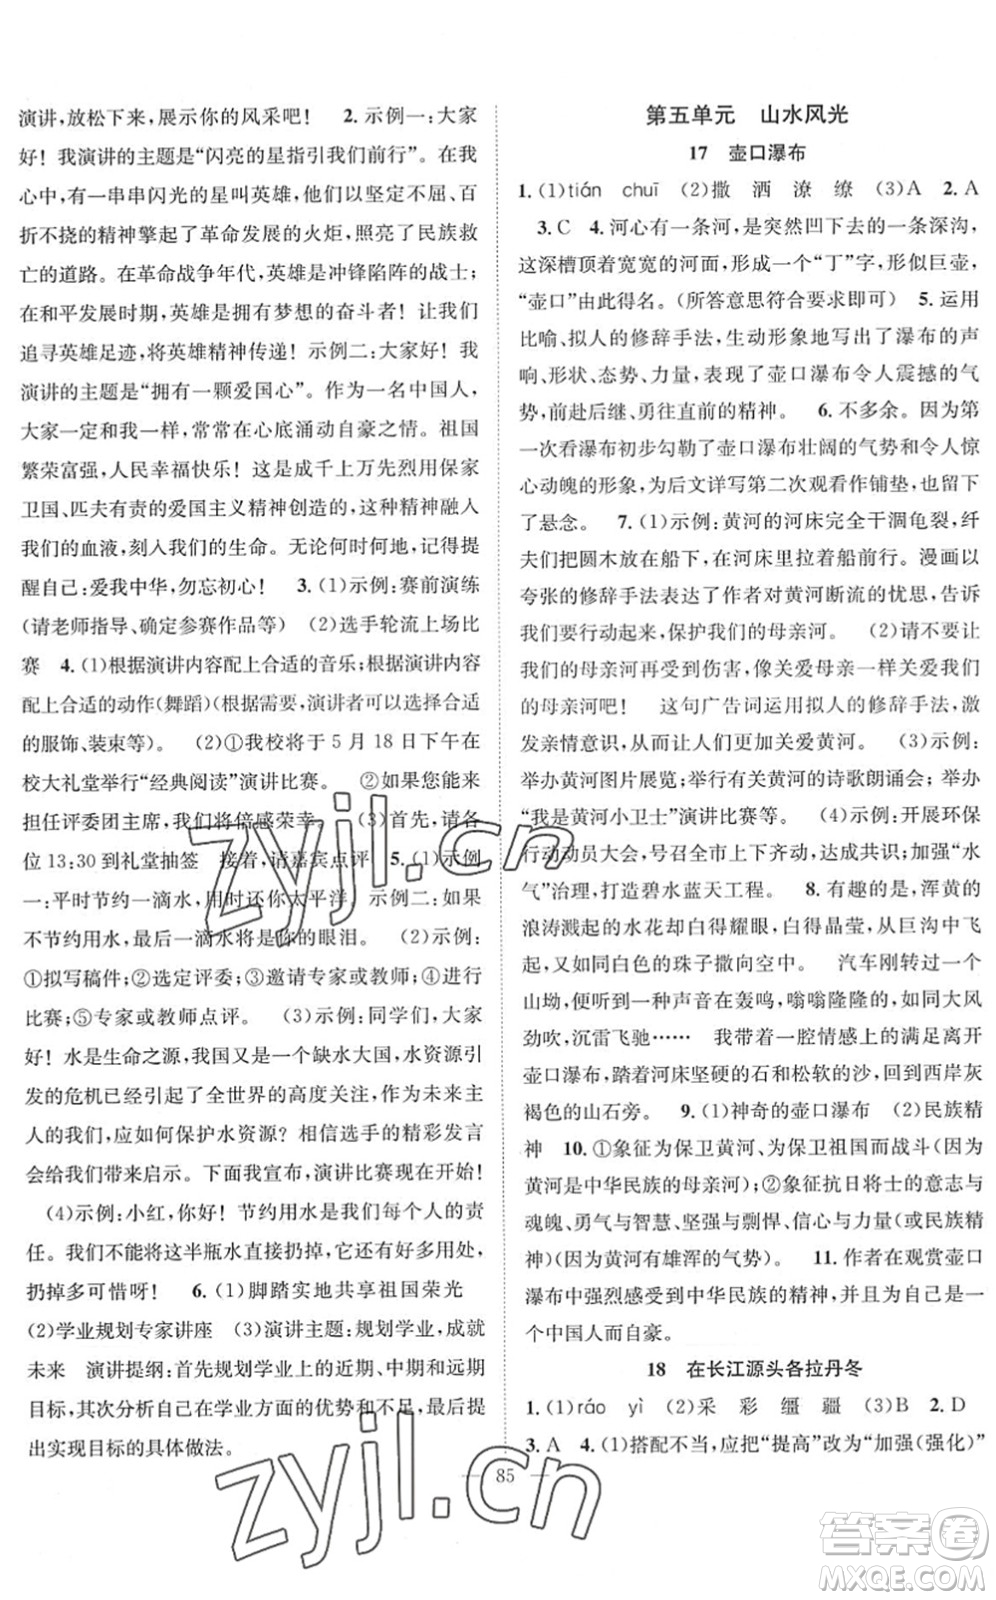 演讲,放松下来,展示你的风采吧! 2.示例一:大家
好! 我演讲的主题是“闪亮的星指引我们前行”。在我
心中,有一串串闪光的星叫英雄,他们以坚定不移、百
折不挠的精神擎起了革命发展的火炬,照亮了民族救
亡的道路。在革命战争年代,英雄是冲锋陷阵的战士;
在和平发展时期,英雄是拥有梦想的奋斗者! 让我们
追寻英雄足迹,将英雄精神传递! 示例二:大家好! 我
演讲的主题是“拥有一颗爱国心”。作为一名中国人,
大家一定和我一样,常常在心底涌动自豪之情。祖国
繁荣富强,人民幸福快乐! 这是成千上万先烈用保家
卫国、匹夫有责的爱国主义精神创造的,这种精神融入
我们的血液,刻入我们的生命。无论何时何地,记得提
醒自己:爱我中华,勿忘初心! 3.(1)示例:赛前演练
(请老师指导、确定参赛作品等) (2)选手轮流上场比
赛 4.(1)根据演讲内容配上合适的音乐;根据演讲内容
配上合适的动作(舞蹈)(根据需要,演讲者穿上合适
的服饰、装束等)。 (2)①我校将于 5 月 18 日下午在
校大礼堂举行“经典阅读”演讲比赛。 ②如果您能来
担任评委团主席,我们将倍感荣幸。 (3)首先,请各
位 13:30 到礼堂抽签 接着,请嘉宾点评 5.(1)示例
一:平时节约一滴水,用时还你太平洋。 示例二:如果
不节约用水,最后一滴水将是你的眼泪。 (2)示例:
①拟写稿件;②选定评委;③邀请专家或教师;④进行
比赛;⑤专家或教师点评。 (3)示例:同学们,大家
好! 水是生命之源,我国又是一个缺水大国,水资源引
发的危机已经引起了全世界的高度关注,作为未来主
人的我们,应如何保护水资源? 相信选手的精彩发言
会给我们带来启示。下面我宣布,演讲比赛现在开始!
(4)示例:小红,你好! 节约用水是我们每个人的责
任。我们不能将这半瓶水直接扔掉,它有好多用处,
扔掉了多可惜呀! 6.(1)脚踏实地共享祖国荣光
(2)学业规划专家讲座 (3)演讲主题:规划学业,成就
未来 演讲提纲:首先规划学业上的近期、中期和远期
目标,其次分析自己在学业方面的优势和不足,最后提
出实现目标的具体做法。
第五单元 山水风光
17 壶口瀑布
1.(1)tián chuī (2)撒 洒 潦 缭 (3)A 2.A
3.C 4.河心有一条河,是突然凹下去的一条深沟,
这深槽顶着宽宽的河面,形成一个“丁”字,形似巨壶,
“壶口”由此得名。(所答意思符合要求即可) 5.运用
比喻、拟人的修辞手法,生动形象地写出了瀑布的声
响、形状、态势、力量,表现了壶口瀑布令人震撼的气
势,前赴后继、勇往直前的精神。 6.不多余。因为第
一次看瀑布初步勾勒了壶口瀑布壮阔的气势和令人惊
心动魄的形象,为后文详写第二次观看作铺垫,也留下
了悬念。 7.(1)示例:黄河的河床完全干涸龟裂,纤
夫们把圆木放在船下,在河床里拉着船前行。漫画以
夸张的修辞手法表达了作者对黄河断流的忧思,告诉
我们要行动起来,保护我们的母亲河。 (2)请不要让
我们的母亲河再受到伤害,像关爱母亲一样关爱我们
的母亲河吧! 这句广告词运用拟人的修辞手法,激
发亲情意识,从而让人们更加关爱黄河。 (3)示例:
举办黄河图片展览;举行有关黄河的诗歌朗诵会;举办
“我是黄河小卫士”演讲比赛等。 (4)示例:开展环保
行动动员大会,号召全市上下齐动,达成共识;加强“水
气”治理,打造碧水蓝天工程。 8.有趣的是,浑黄的
浪涛溅起的水花却白得耀眼,白得晶莹,从巨沟中飞
起,又如同白色的珠子撒向空中。 汽车刚转过一个
山坳,就听到一种声音在轰鸣,嗡嗡隆隆的,如同大风
劲吹,沉雷飞驰…… 我带着一腔情感上的满足离开
壶口瀑布,踏着河床坚硬的石和松软的沙,回到西岸灰
褐色的山石旁。 9.(1)神奇的壶口瀑布 (2)民族精
神 10.①象征为保卫黄河、为保卫祖国而战斗(因为
黄河是中华民族的母亲河);②象征抗日将士的意志与
魂魄、勇气与智慧、坚强与剽悍、信心与力量(或民族精
神)(因为黄河有雄浑的气势)。 11.作者在观赏壶口
瀑布中强烈感受到中华民族的精神,并从而因自己是
一个中国人而自豪。
18 在长江源头各拉丹冬
1.(1)ráo yì (2)采 彩 缰 疆 (3)B 2.D
3.A 4.(1)搭配不当,应把“提高”改为“加强(强化)”
85
zyjl.cn
zyjl.cn
答案卷
MXQE.COM